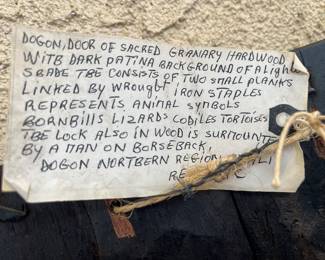 DOGON, DOOR OF SACRED GRANARY HARDWOOD
WITB DARK PATINA BACKGROUND OF A LIGHT
SBADE TBE CONSISTS OF, TWO SMALL PLANKS
LINKED BY WROUGHT, IRON STAPLES
REPRESENTS ANIMAL SYMBOLS
BORNBILLS LIZARDS CODILES TORTOISES
TBE LOCK ALSO IN WOOD IS SURMOUNTE
BY A MAN ON BORSEBACK,
DOGON NORTBERN REGION